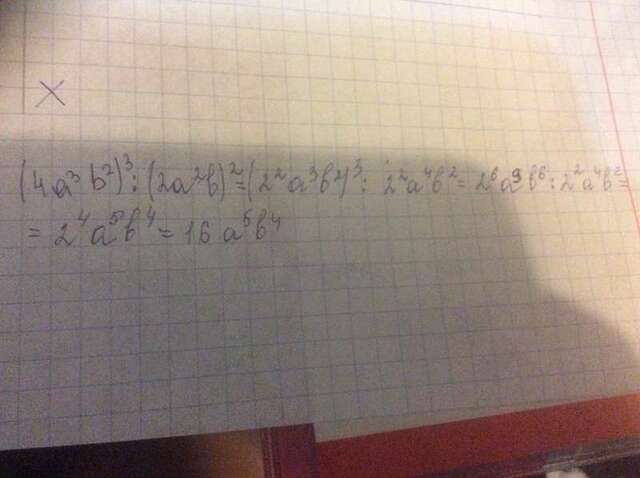 ×
(4a³b²)³:(2a²b)²=(2²a³b²)³:2²a⁴b²=2⁶a⁹b⁶:2²a⁴b²=
=2⁴a⁵b⁴=16a⁵b⁴